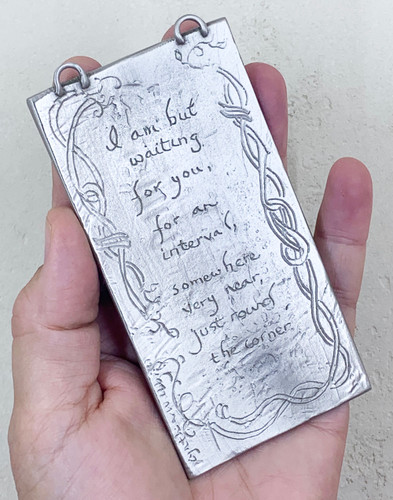 I am but
waiting
for you,
for an
interval,
somewhere
very near,
just round
the corner.